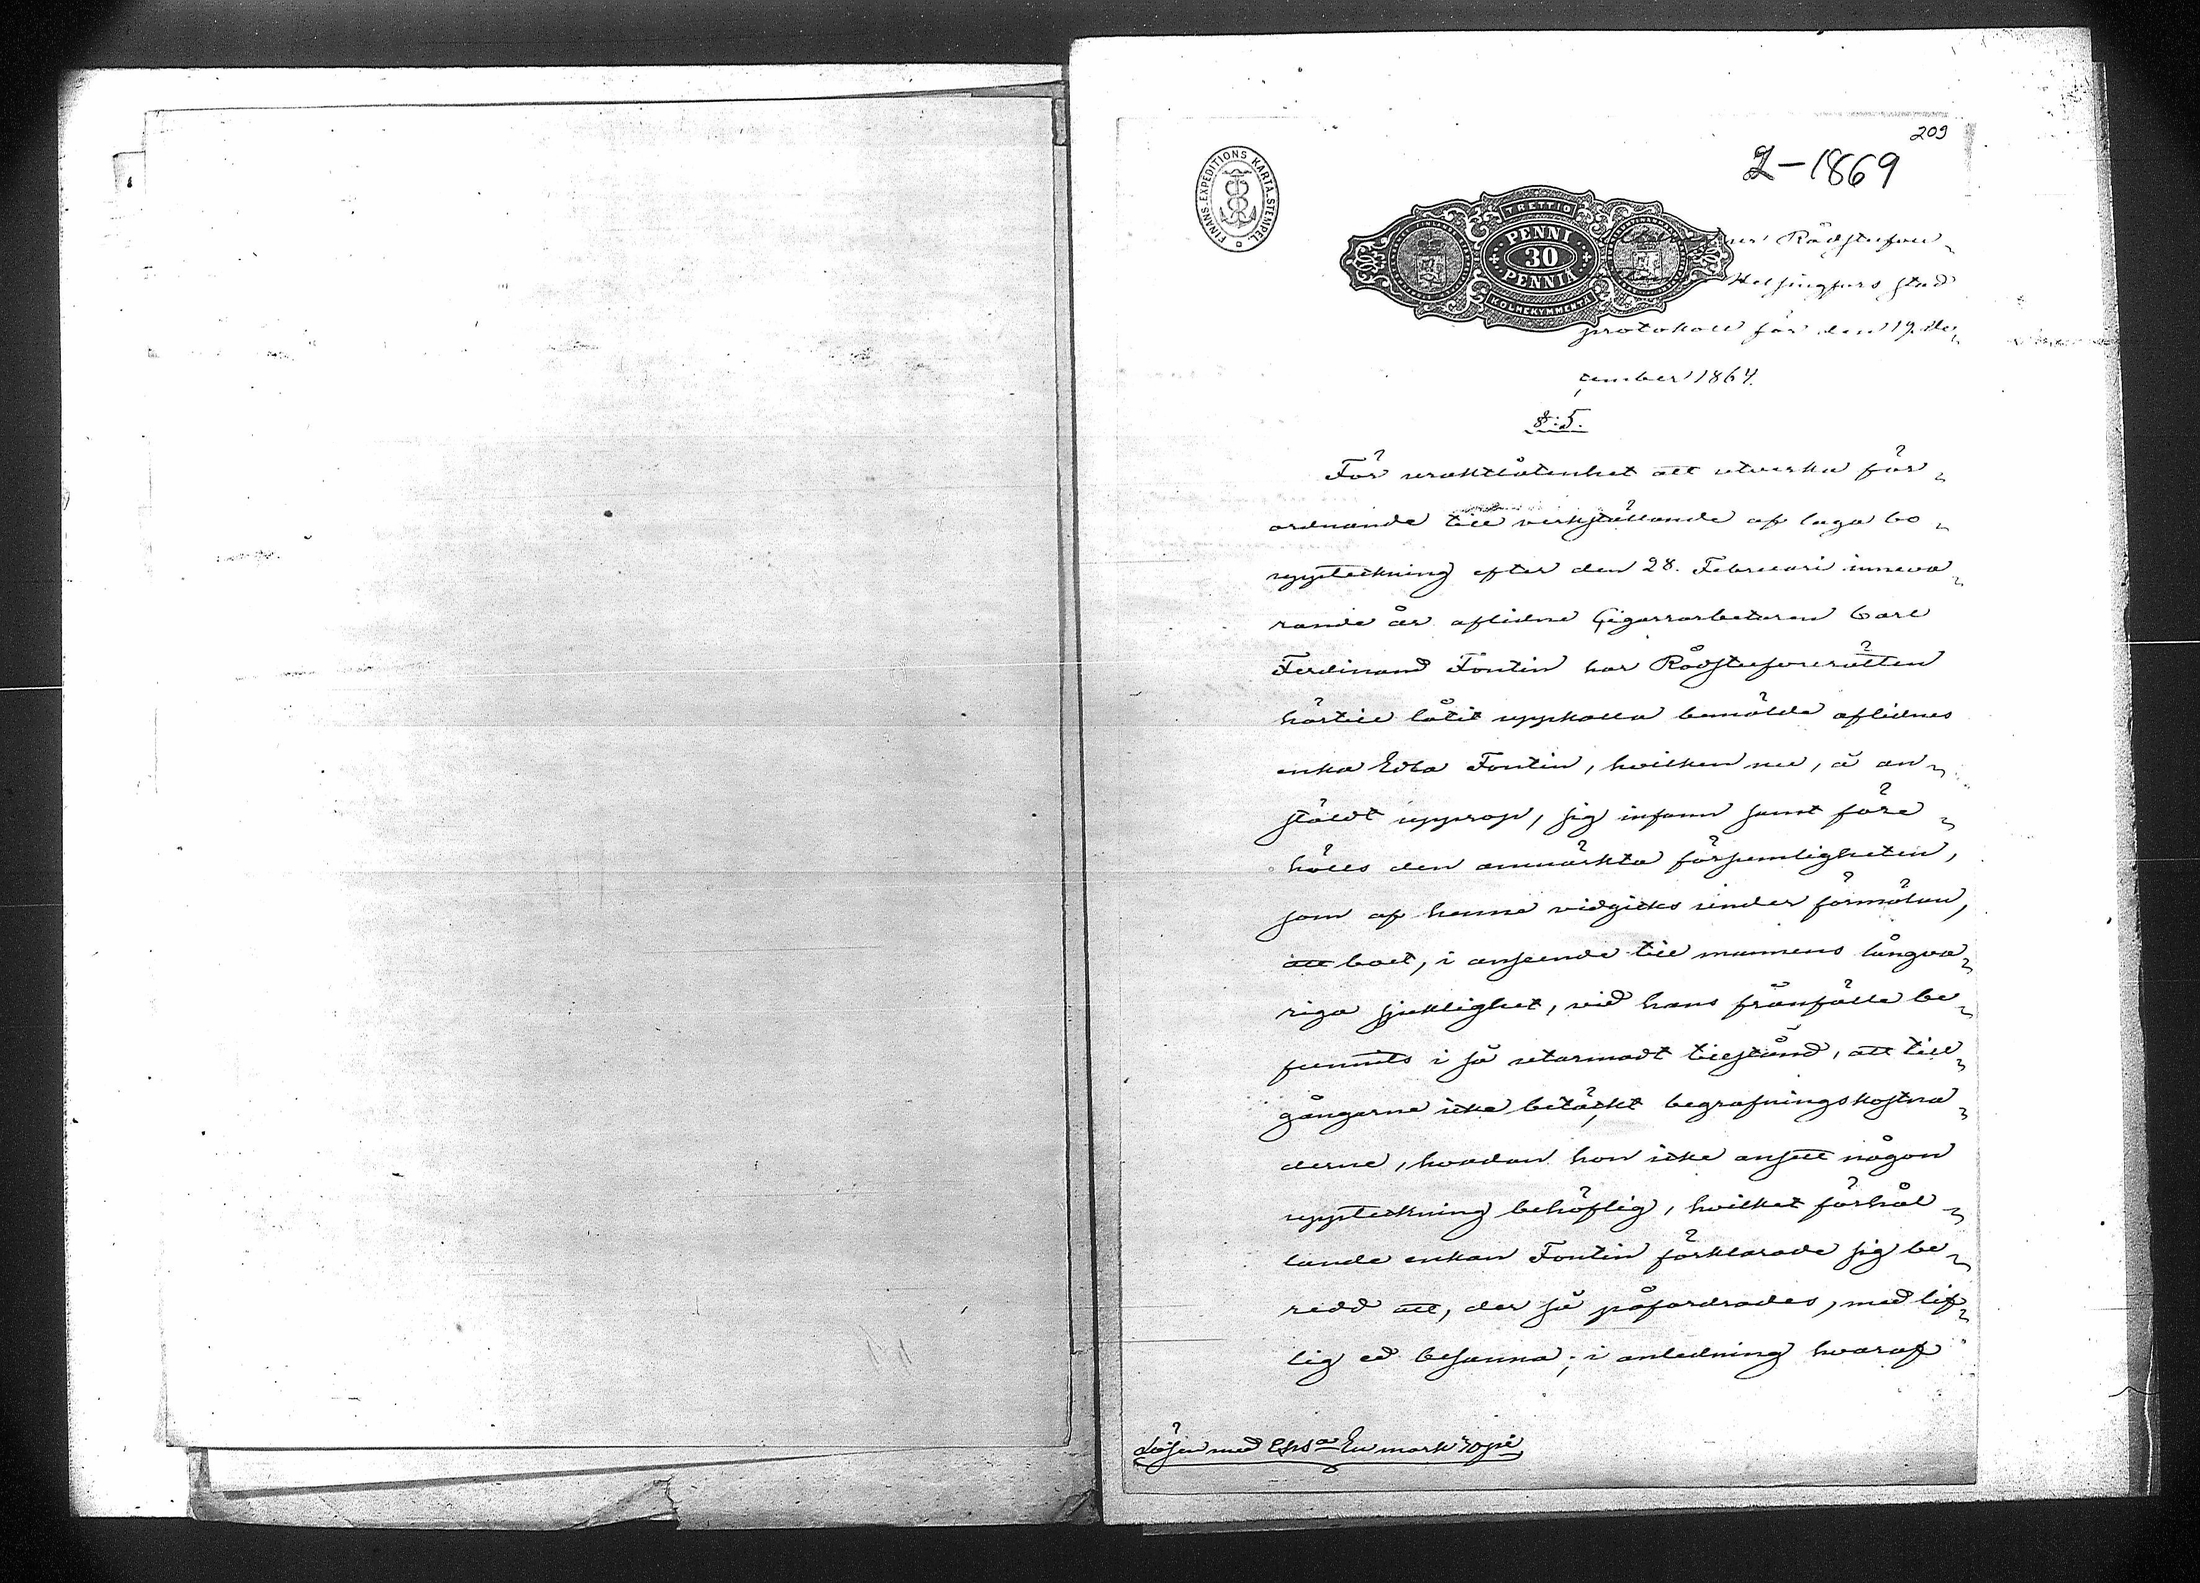 209
2-1869
FINANS-EXPEDITIONS KARTA.STEMPEL.
TRETTIO
PENNI
30
PENNIÄ
KOLMEKYMMENTÄ
Rådstufvu-
Helsingfors stad
protokoll för den 19 De-
cember 1864.
§:5.
För uraktlåtenhet att utverka för-
ordnande till verkställande af laga bo-
uppteckning efter den 28. Februari inneva-
rande år aflidne Cigarrarbetaren Carl
Ferdinand Fontin har Rådstufvurätten
härtill låtit uppkalla bemälde aflidnes
enka Edla Fontin, hvilken nu, å an-
stäldt upprop, sig infann samt före-
hölls den anmärkta försumligheten,
som af henne vidgicks under förmälan,
att boet, i anseende till mannens långva-
riga sjuklighet, vid hans frånfälle be-
funnits i så utarmadt tillstånd, att till-
gångarne icke betäckt begrafningskostna-
derne, hvadan hon icke ansett någon
uppteckning behöflig, hvilket förhål-
lande enkan Fontin förklarade sig be-
redd att, der så påfordrades, med lif-
lig ed besanna; i anledning hvaraf
Lösen med En mark 70 pi